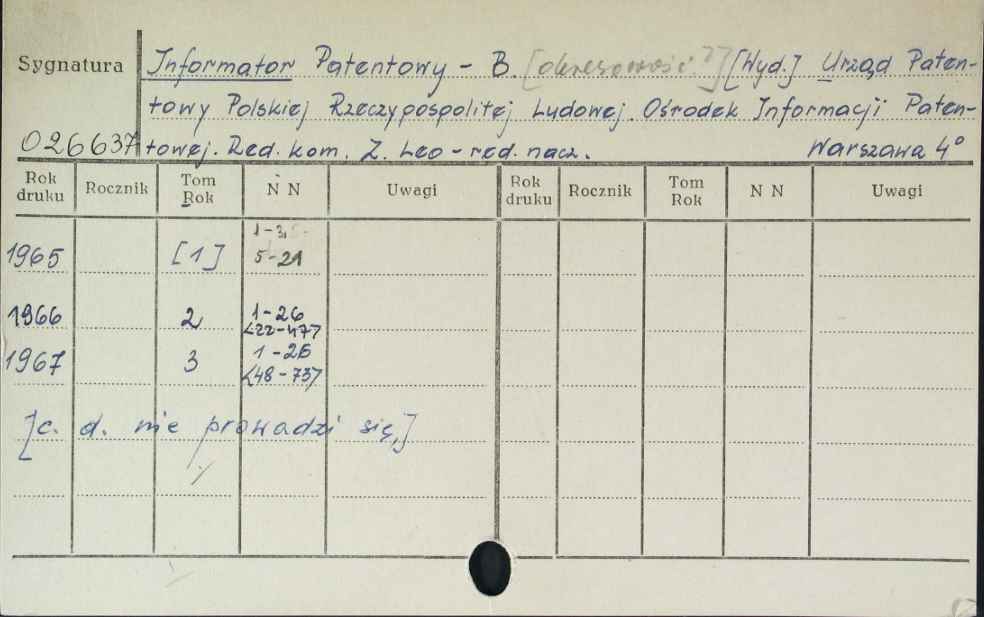 Sygnatura Informator Patentowy - B. [okresowość?] [Wyd.] Urząd Paten-
towy Polskiej Rzeczypospolitej Ludowej. Ośrodek Informacji Paten-
026637 towej. Red. kom. Z. Leo - red. nacz. Warszawa 4°
Rok druku Rocznik Tom Rok N N Uwagi Rok druku Rocznik Tom Rok N N Uwagi
1-3,
1965 [1] 5-21
1966 2 1-26
<22-47>
1967 3 1-26
<48-73>
[c. d. nie prowadzi się,]